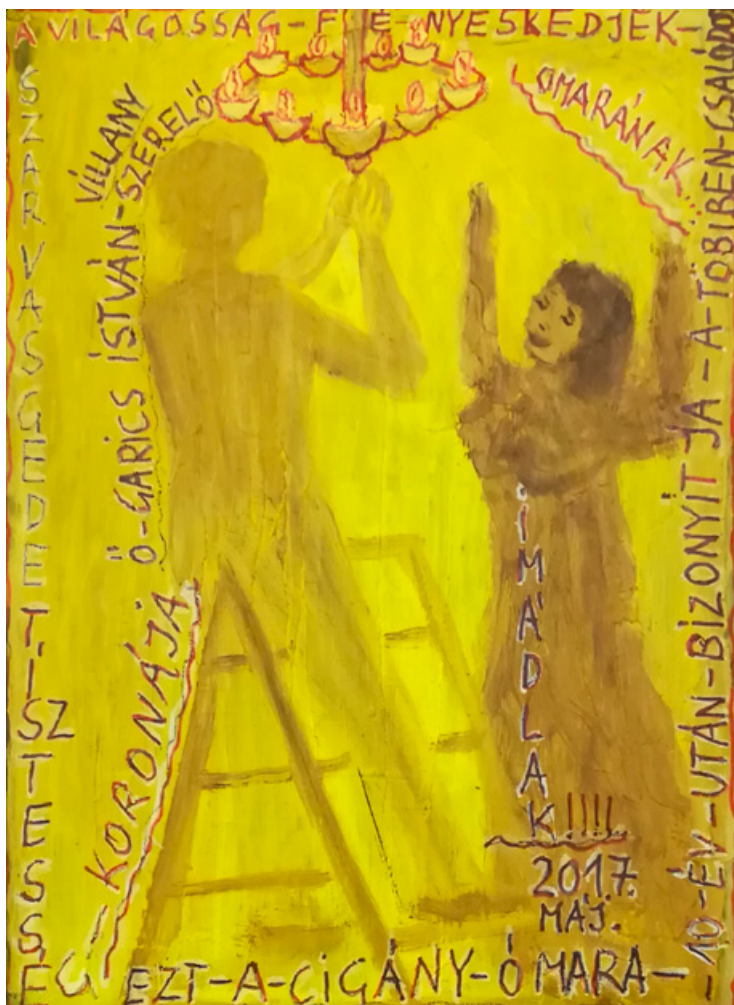 A VILÁGOSSÁG-F É-NYESKEDJÉK-
SZARVASGEDE TISZTESSEG
VILLANY
Ő-GARICS ISTVÁN-SZERELŐ
-KORONÁJA
OMARÁNAK..!!
IMÁDLAK!!!!
2017.
MÁJ.
EZT-A-CIGÁNY-ÓMARA-
-10-ÉV-UTÁN-BIZONYÍTJA-A-TÖBIBEN-